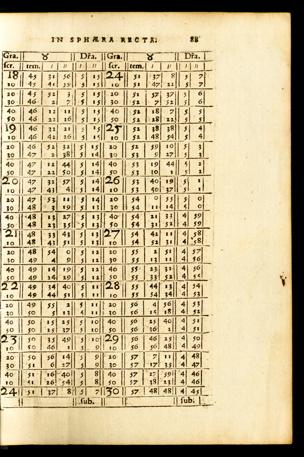 IN SPHÆRA RECTA. 88
Gra. ♉ Dr̃a. Gra. ♉ Dr̃a.
scr. tem. ı ıı ı ıı scr. tem. ı ıı ı ıı
18 45 31 56 5 15 24 51 37 8 5 7
20 45 52 5 15 20 51 57 37 5
30 46 2 7 5 15 30 52 7 52 5 6
40 46 12 5 15 40 52 18 7 5 5
19 46 32 5 15 25 52 38 38 5 4
10 46 42 26 5 15 10 52 48 54 5 4
20 46 52 32 5 15 20 52 59 10 5 3
30 47 2 38 5 14 30 53 9 27 5 3
40 47 12 44 5 14 40 53 19 44 5 2
50 47 22 50 5 14 50 53 30 5 2
20 47 32 57 5 14 26 53 40 5 1
10 47 43 4 5 14 10 53 40 37 5
20 47 53 11 5 20 54 0 55 5 0
30 48 3 19 5 13 30 54 11 14 5 0
40 48 13 27 5 13 40 54 21 33 4 59
50 48 23 35 5 13 50 54 31 52 4 59
21 48 33 43 5 13 27 54 42 12 4 58
10 48 43 51 5 13 10 54 52 32 4 58
20 48 54 0 5 12 20 55 2 51 4 57
30 49 4 9 5 12 30 55 13 12 4 56
40 49 14 19 5 12 40 55 23 32 4 56
50 49 24 29 5 12 50 55 33 52 4 55
22 49 34 40 5 11 28 55 44 13 4 54
10 49 44 51 5 11 10 55 54 34 4 53
20 49 55 2 5 11 20 56 4 56 4 53
30 50 5 13 4 11 30 56 15 18 4 52
40 50 15 25 5 10 40 56 25 40 4 51
50 50 25 37 5 10 50 56 36 2 4 51
23 50 35 49 5 10 29 56 46 25 4 50
10 50 46 1 5 9 10 56 56 48 4 49
20 50 56 14 5 9 20 57 7 11 4 48
30 51 6 27 5 9 30 57 17 35 4 47
40 51 16 40 5 8 40 57 27 59 4 46
50 41 26 54 5 8 50 57 38 23 4 46
24 51 37 8 5 7 30 57 48 48 4 45
sub. sub.